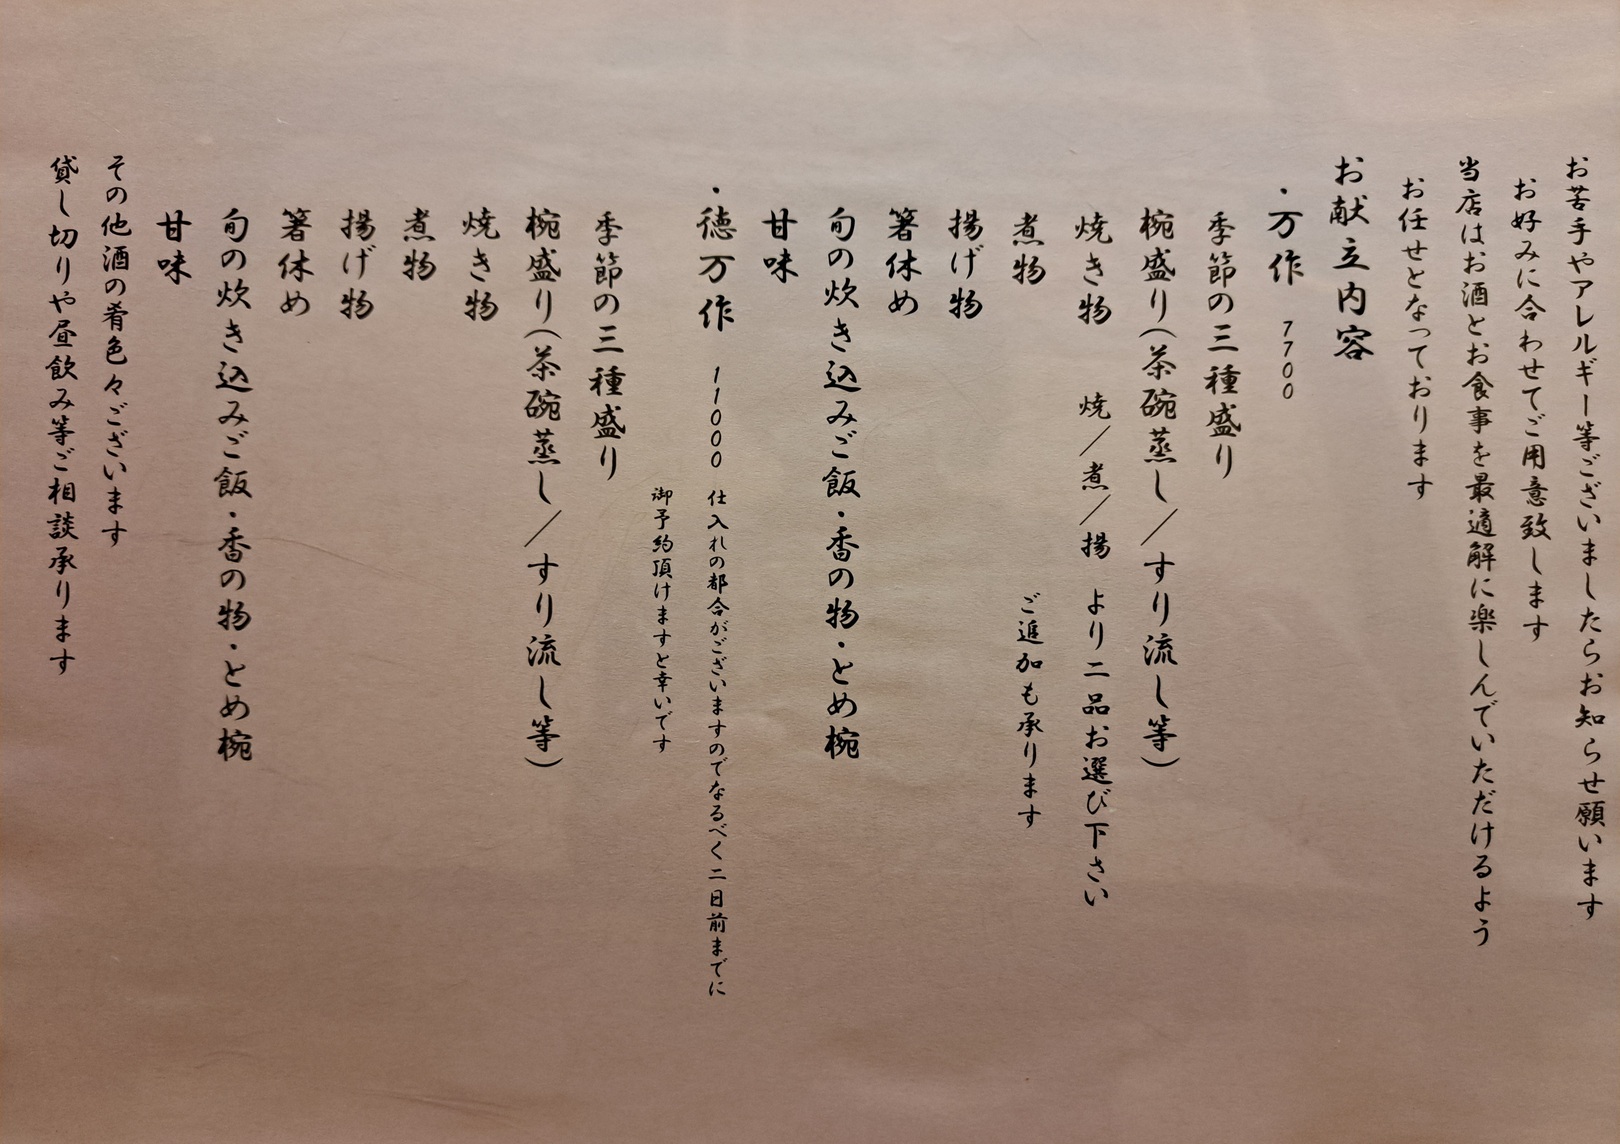 お苦手やアレルギー等ございましたらお知らせ願います
お好みに合わせてご用意致します
当店はお酒とお食事を最適解に楽しんでいただけるよう
お任せとなっております
お献立内容
・万作 7700
季節の三種盛り
椀盛り(茶碗蒸し/すり流し等)
焼き物 焼/煮/揚 より二品お選び下さい
煮物 ご追加も承ります
揚げ物
箸休め
旬の炊き込みご飯・香の物・とめ椀
甘味
・徳万作 11000 仕入れの都合がございますのでなるべく二日前までに
御予約頂けますと幸いです
季節の三種盛り
椀盛り(茶碗蒸し/すり流し等)
焼き物
煮物
揚げ物
箸休め
旬の炊き込みご飯・香の物・とめ椀
甘味
その他酒の肴色々ございます
貸し切りや昼飲み等ご相談承ります